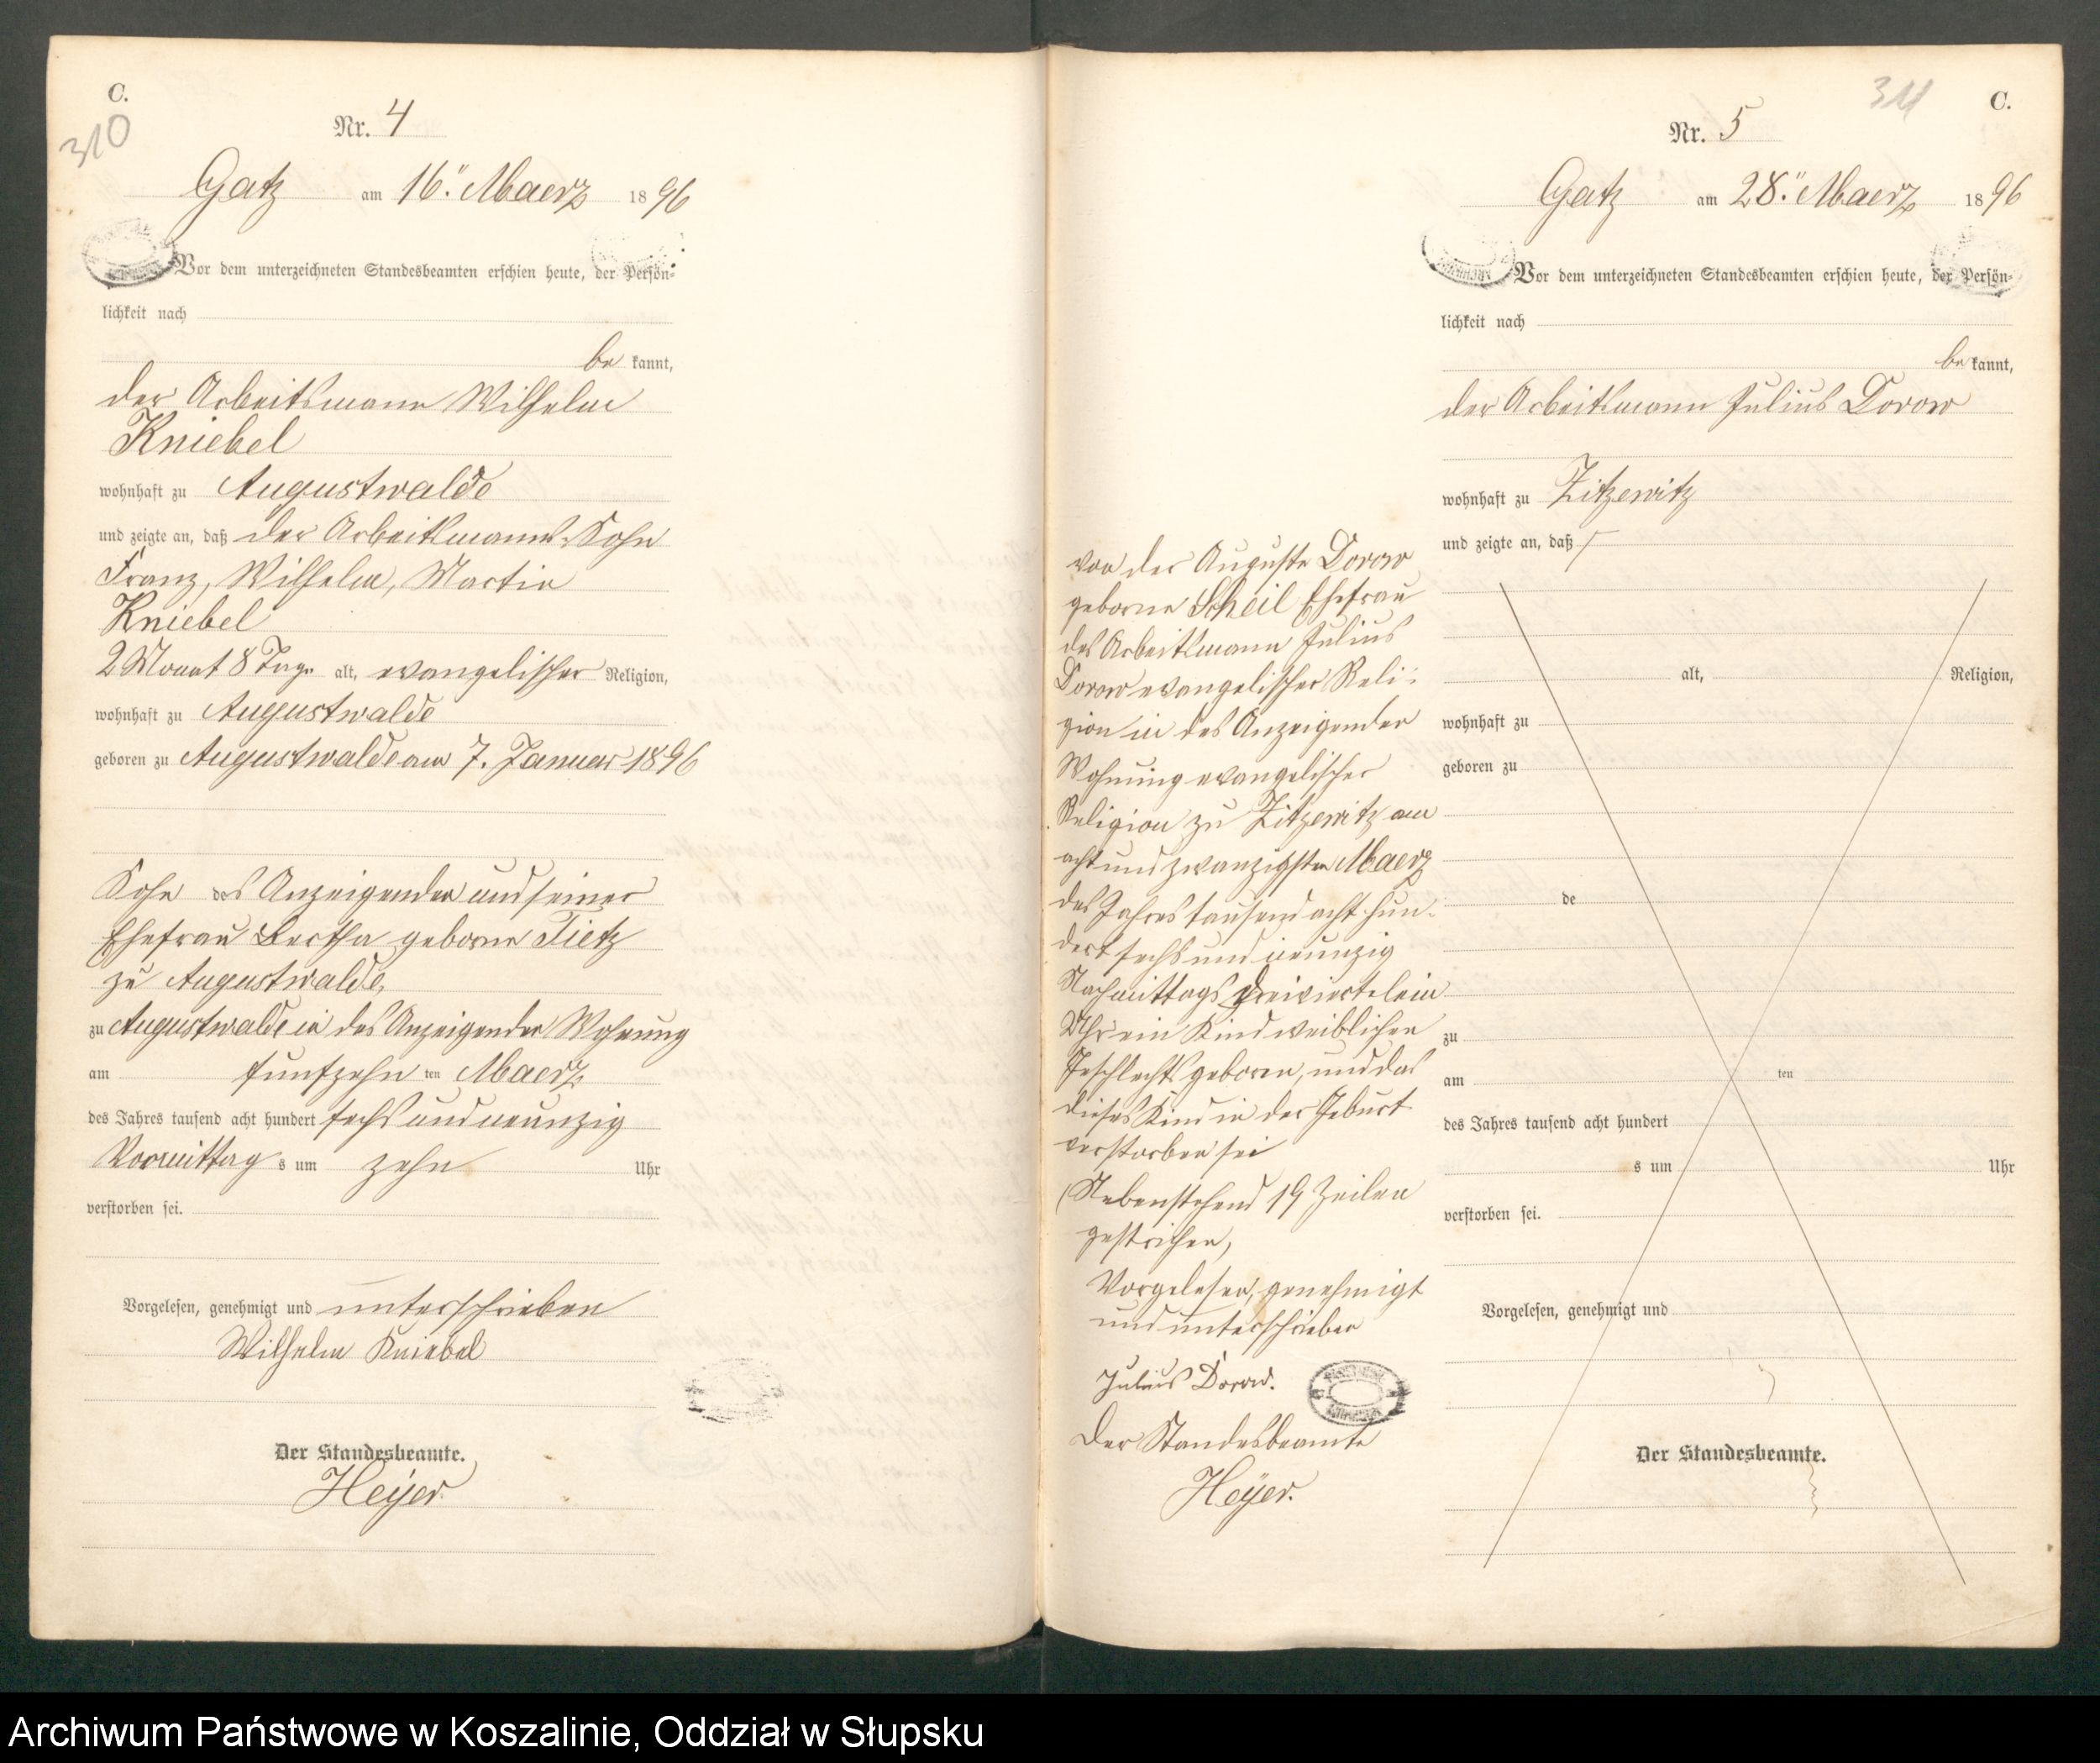 C.
310
Nr. 4
Gatz am 16ten Maerz 1896
Vor dem unterzeichneten Standesbeamten erschien heute, der Persön-
lichkeit nach
be kannt,
der Arbeitsmann Wilhelm
Kniebel
wohnhaft zu Augustwalde
und zeigte an, daß der Arbeitsmanns-Sohn
Franz, Wilhelm, Martin
Kniebel
2 Monat 8 Tage alt, evangelischer Religion,
wohnhaft zu Augustwalde
geboren zu Augustwalde am 7. Januar 1896
Sohn des Anzeigenden und seiner
Ehefrau Bertha geborne Tietz
zu Augustwalde,
zu Augustwalde in des Anzeigenden Wohnung
am funfzehn ten Maerz
des Jahres tausend acht hundert sechs und neunzig
Vormittag s um zehn Uhr
verstorben sei.
Vorgelesen, genehmigt und unterschrieben
Wilhelm Kniebel
Der Standesbeamte.
Heyer
311
C.
Nr. 5
Gatz am 28ten Maerz 1896
Vor dem unterzeichneten Standesbeamten erschien heute, der Persön-
lichkeit nach
be kannt,
der Arbeitsmann Julius Dorow
wohnhaft zu Zitzewitz
und zeigte an, daß
von der Auguste Dorow
geborne Scheil Ehefrau
des Arbeitsmann Julius
Dorow evangelischer Reli-
gion in des Anzeigenden
Wohnung evangelischer
Religion zu Zitzewitz am
acht und zwanzigsten Maerz
des Jahres tausend acht hun-
dert sechs und neunzig
Nachmittags dreiviertelein
Uhr ein Kind weiblichen
Geschlechts geboren, und das
dieses Kind in der Geburt
verstorben sei
(Nebenstehend 19 Zeilen
gestrichen,
Vorgelesen, genehmigt
und unterschrieben
Julius Dorow.
Der Standesbeamte
Heyer.
alt, Religion,
wohnhaft zu
geboren zu
de
zu
am ten
des Jahres tausend acht hundert
s um Uhr
verstorben sei.
Vorgelesen, genehmigt und
Der Standesbeamte.
Archiwum Państwowe w Koszalinie, Oddział w Słupsku